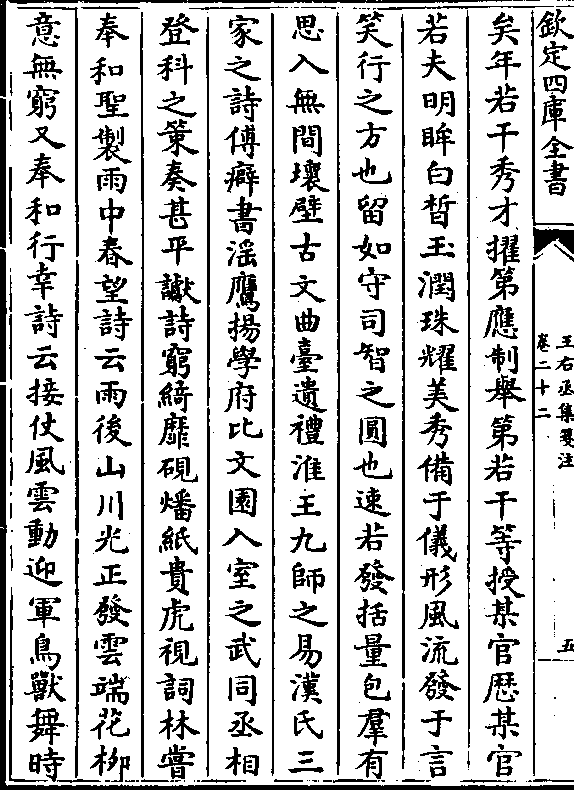 欽定四庫全書
王右丞集箋注
卷二十二
五
矣年若干秀才擢第應制舉第若干等授某官歴某官
若夫明眸白皙玉潤珠耀美秀備于儀形風流發于言
笑行之方也留如守司智之圓也速若發括量包羣有
思入無間壊壁古文曲臺遺禮淮王九師之易漢氏三
家之詩傅癖書滛鷹揚學府比文園入室之武同丞相
登科之策奏甚平讞詩窮綺靡硯燔紙貴虎視詞林嘗
奉和聖製雨中春望詩云雨後山川光正發雲端花栁
意無窮又奉和行幸詩云接仗風雲動迎軍鳥獸舞時